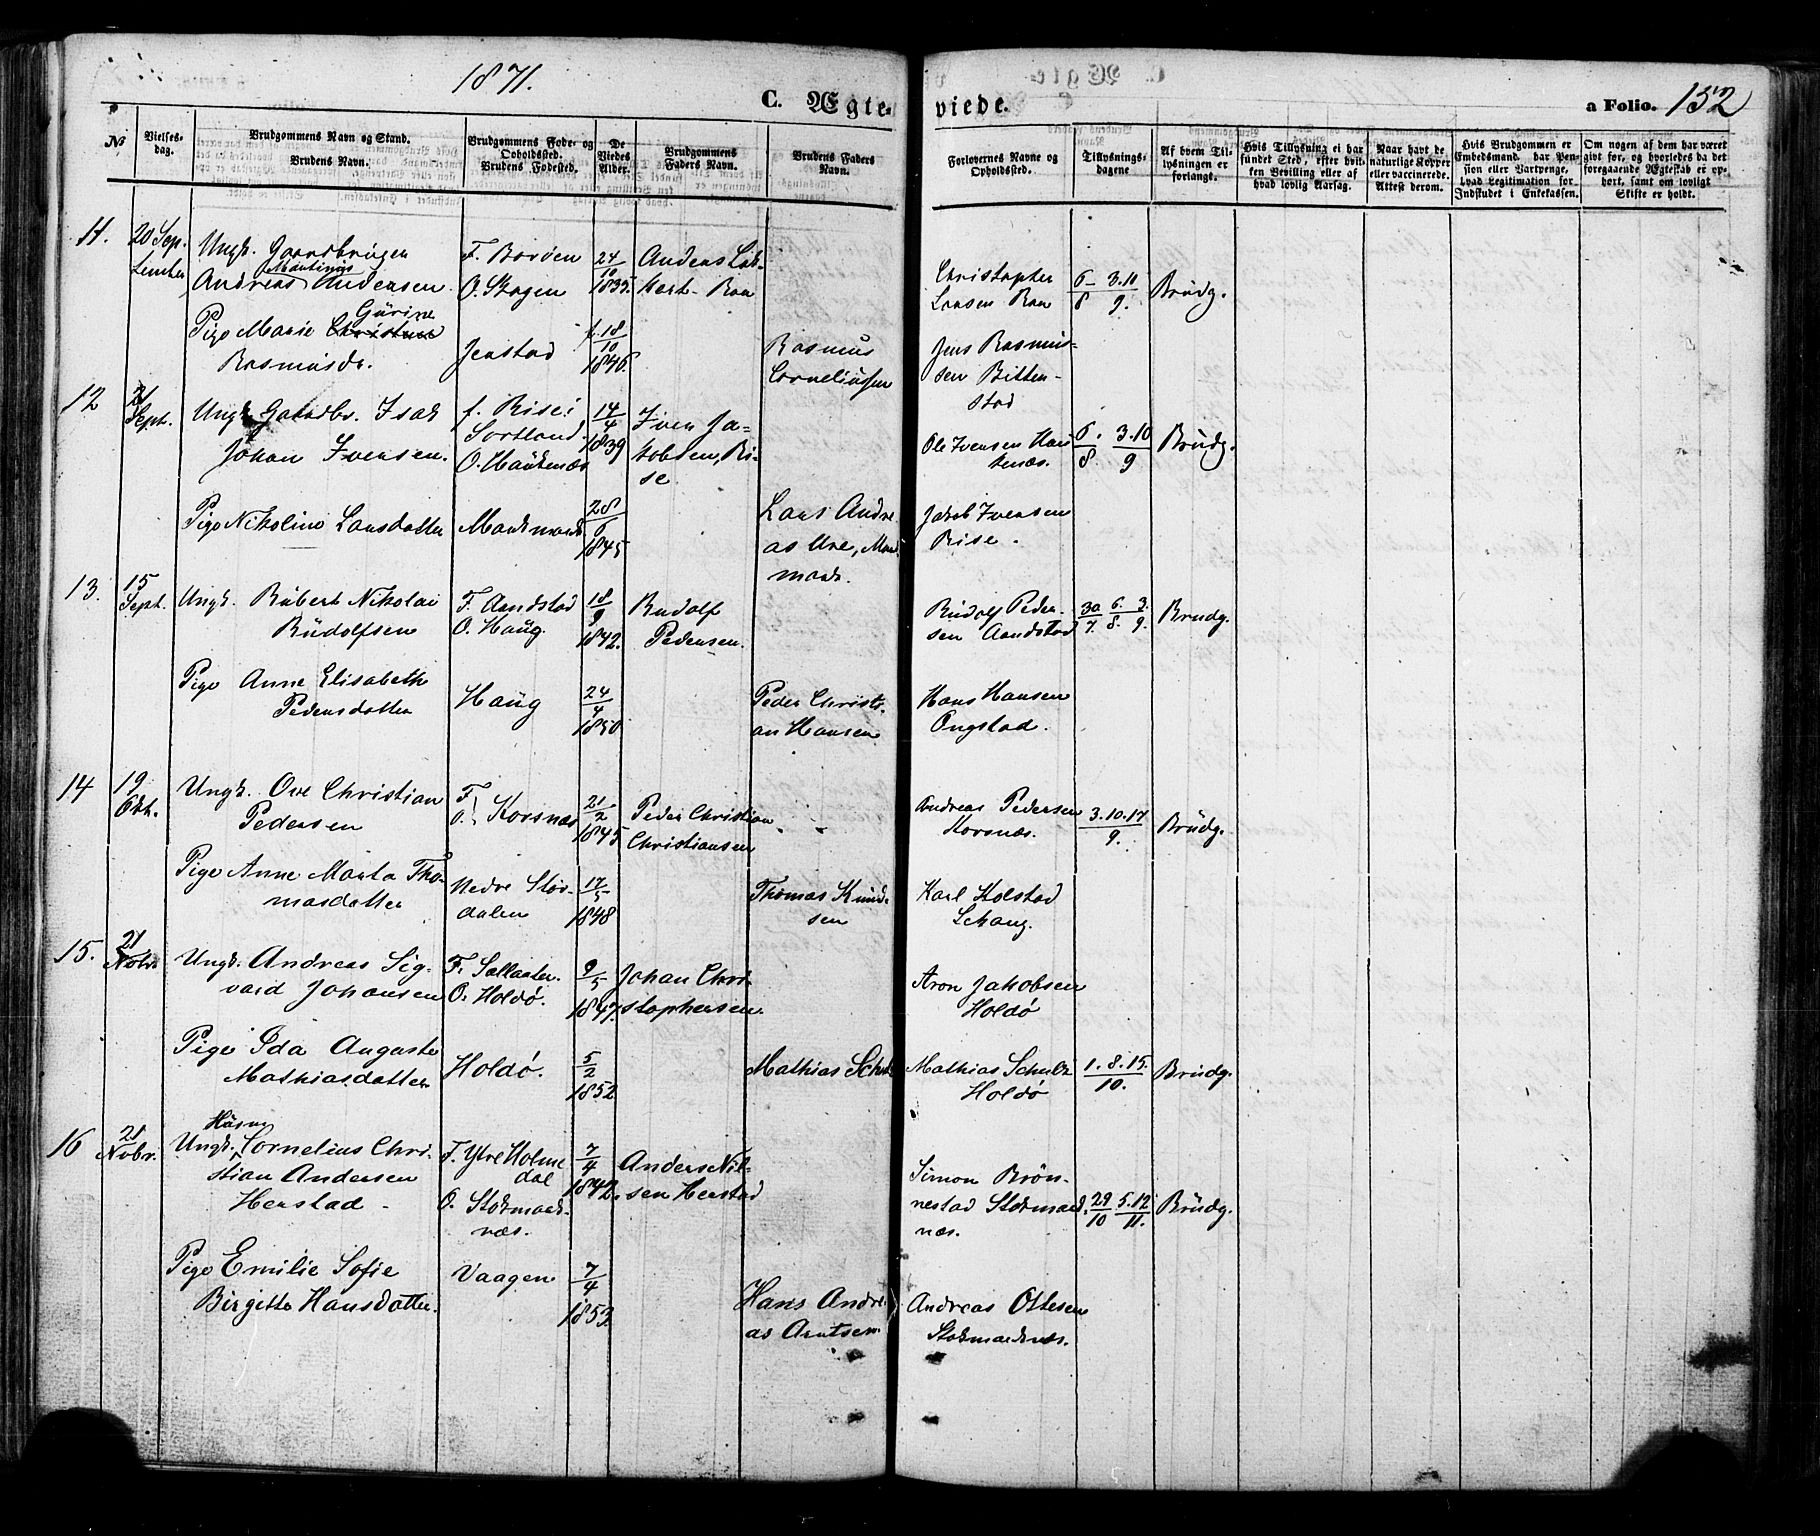 1871.
C. Ægteviede.
a Folio. 152
No
Vielsesdag.
Brudgommens Navn og Stand.
Brudens Navn.
Brudgommens Føde- og Opholdssted.
Brudens Fødested.
De Viedes Alder.
Brudgommens Faders Navn.
Brudens Faders Navn.
Forlovernes Navne og Opholdssted.
Tillysningsdagene
Af hvem Tillysningen er forlangt.
Hvis Tillysning ei har fundet Sted, efter hvilken Bevilling eller af hvad lovlig Aarsag.
Naar havt de naturlige Kopper eller vaccinerede. Attest derom.
Hvis Brudgommen er Embedsmand, har Pension eller Vartpenge, hvad Legitimation for Indskudet i Enkekassen.
Om nogen af dem har været givt før, og hvorledes da det foregaaende Ægteskab er ophørt, samt om lovligt Skifte er holdt.
11.
20 September
Ungk. Gaardbruger
Andreas Martinus Andersen
F. Barøen
O. Skagen
24/10 1835.
Anders Lok-
kert- Ran
Christopher
Larsen Ran
6/8 - 3.10/9.
Brudg.
Pige Marie Gurine
Rasmusdr.
Jenstad
f. 18/10 1846.
Rasmus
Corneliussen
Jens Rasmus-
sen Bitter-
stad
12
21 Sept.
Ungk. Gaardbr. Isak
Johan Iversen.
f. Rise i
Sortland.
O. Haukenæs
14/4 1839
Iver Ja-
kobsen, Ri-
se
Ole Iversen Hau
kenæs.
6./8. 3.10/9
Brudg.
Pige Nikoline Larsdatter
28/6 1845
Lars Andre
as Ure,
Jakob Iversen
Rise.
13.
15 Sept.
Ungk. Rubert Nikolai
Rudolfsen
F. Aandstad
O. Haug.
18/9 1842.
Rudolf
Pedersen.
Rudolf Peder-
sen Aandstad
30/7. 6./8. 3./9.
Brudg.
Pige Anne Elisabeth
Pedersdatter
Haug
24/4 1850
Peder Christi-
an Hansen
Hans Hansen
Ongstad.
14
19 Okt.
Ungk. Ove Christian
Pedersen
F.
O. Korsnæs
21/2 1845
Peder Christian
Christiansen
Andreas Pedersen
Korsnæs.
3.10.17/9.
Brudg.
Pige Anne Marta Tho-
masdatter
Nedre Stør-
dalen
17/5 1848
Thomas Knud-
sen
Karl Holstad
15.
21 Nobr.
Ungk. Andreas Sig-
vard Johansen
F. Sallater.
O. Holdø.
9/5 1847.
Johan Chri-
stophersen.
Aron Jakobsen
Holdø
Pige Ida Auguste
Mathiasdatter
Holdø.
5/2 1852
Mathias Schulz
Mathias Schulz
Holdø
1.8.15./10.
Brudg.
16
21 Nobr.
Ungk. Cornelius Chri-
stian Andersen
Herstad
F. Ytre Holme
dal
O. Stokmark-
næs.
7/4 1842.
Anders Nil-
sen Herstad
Simon Brøn-
nestad Stokmark
næs.
29/10 5.12/11.
Brudg.
Pige Emilie Sofie
Birgitte Hansdatter.
Vaagen
7/4 1853.
Hans Andre-
as Arntsen
Andreas Ottesen
Stokmarknæs.